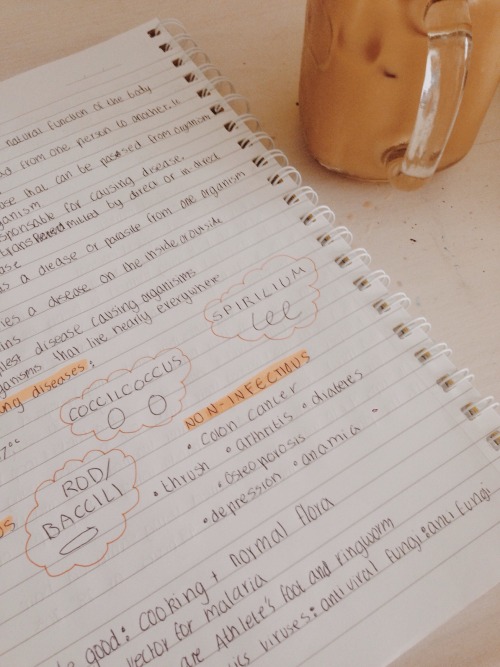 natural function of the body
from one person to another. ie
that can be passed from organism
organism
responsable for causing disease
by direct or in direct
a disease or parasite from one organism
a disease on the inside/outside
disease causing organisms
organisms that live nearly everywhere
diseases:
SPIRILIUM
COCCILCOCCUS
NON-INFECTIOUS
• colon cancer
• thrush • arthritis • diabetes
• osteoporosis
• depression • anamia
ROD/
BACCILI
good: cooking + normal flora
vector for malaria
are Athlete's foot and ringworm
viruses: anti viral fungi: anti fungi